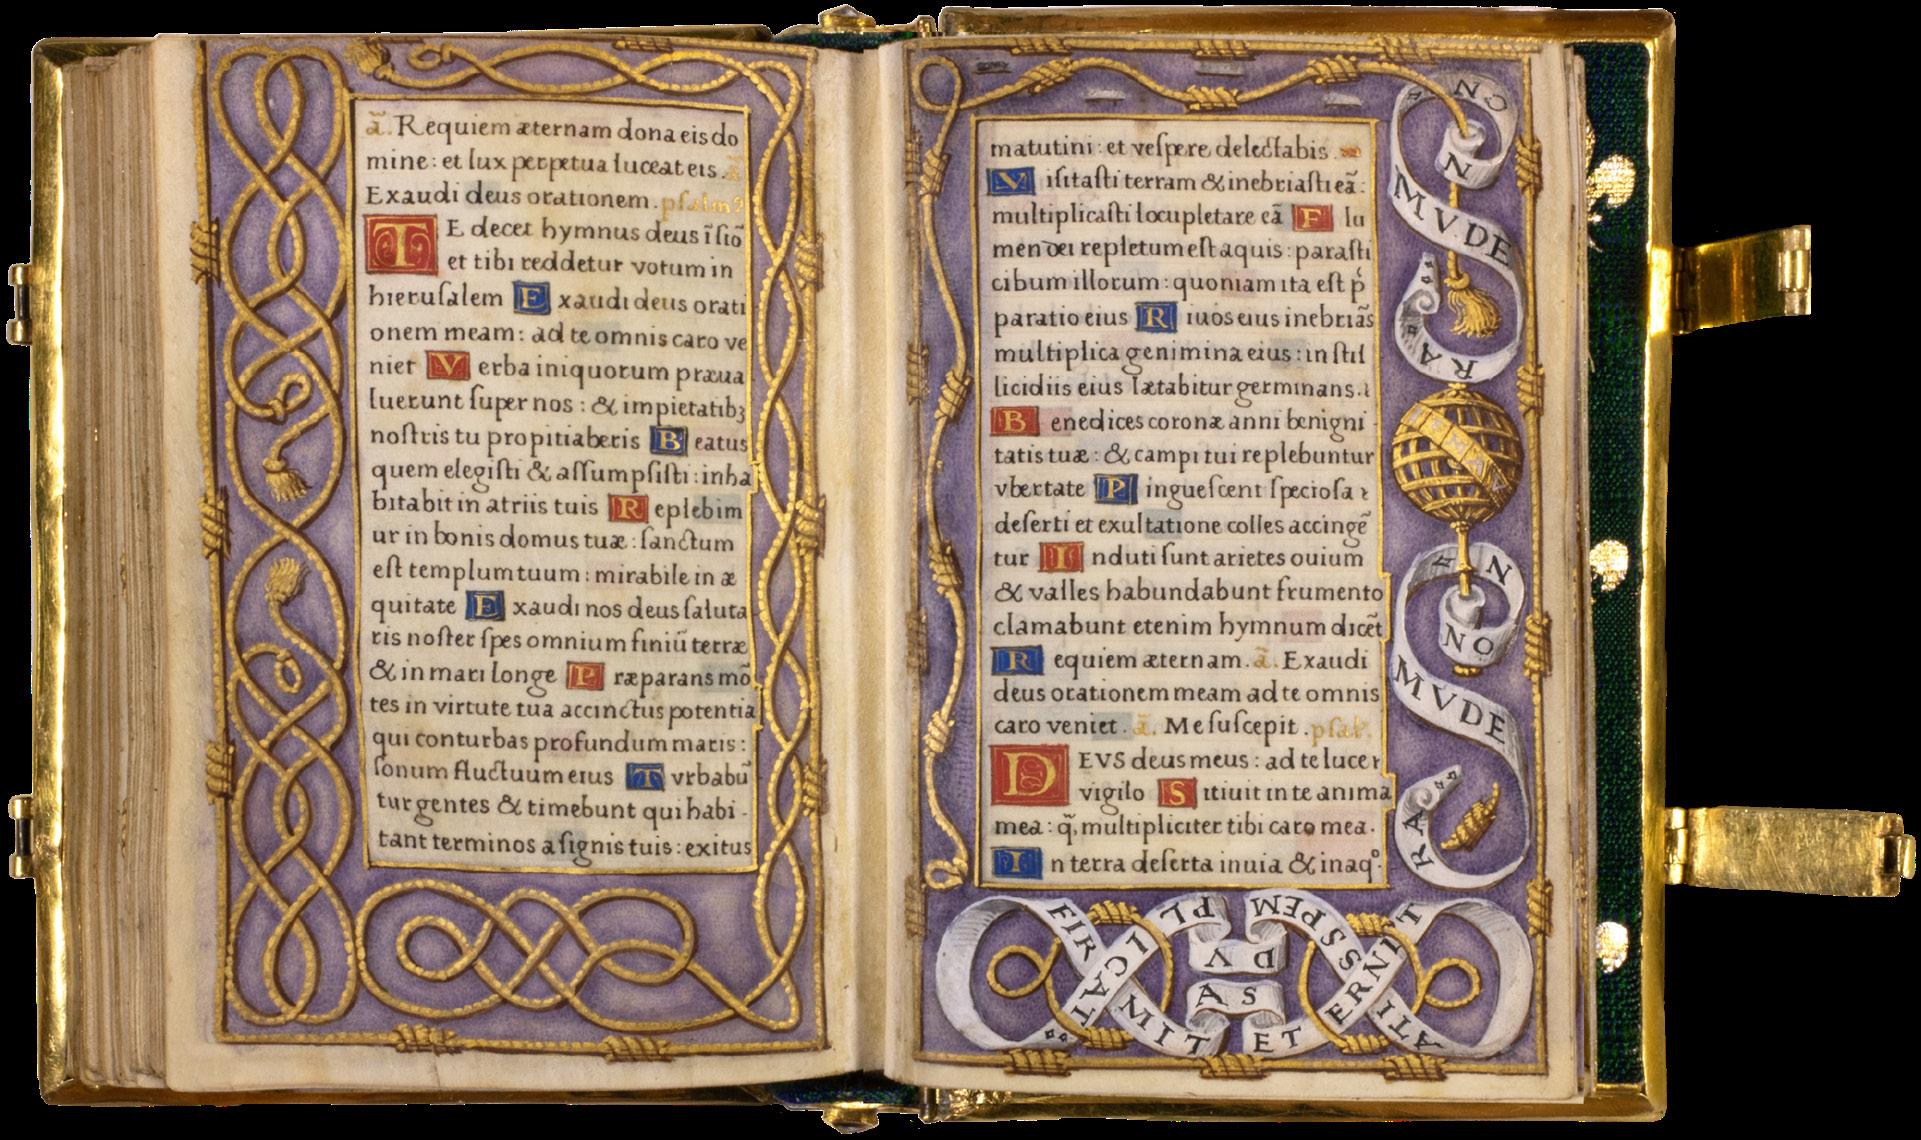 ā. Requiem æternam dona eis do
mine: et lux perpetua luceat eis. ā
Exaudi deus orationem. psalm9
TE decet hymnus deus ī siō
et tibi reddetur votum in
hieruſalem Exaudi deus orati
onem meam: ad te omnis caro ve
niet Verba iniquorum præua
luerunt ſuper nos: & impietatibꝫ
noſtris tu propitiaberis Beatus
quem elegiſti & aſſumpſiſti: inha
bitabit in atriis tuis Replebim
ur in bonis domus tuæ: ſanctum
eſt templum tuum: mirabile in æ
quitate Exaudi nos deus ſaluta
ris noſter ſpes omnium finiū terræ
& in mari longe Præparans mō
tes in virtute tua accinctus potentia
qui conturbas profundum maris:
ſonum fluctuum eius Turbabū
tur gentes & timebunt qui habi-
tant terminos a ſignis tuis: exitus
matutini: et veſpere delectabis.
Viſitaſti terram & inebriaſti eā:
multiplicaſti locupletare eā Flu
men dei repletum eſt aquis: paraſti
cibum illorum: quoniam ita eſt p̄
paratio eius Riuos eius inebriās
multiplica genimina eius: in ſtil
licidiis eius lætabitur germinans.
Benedices coronæ anni benigni-
tatis tuæ: & campi tui replebuntur
vbertate Pingueſcent ſpecioſa
deſerti et exultatione colles accingē
tur Induti ſunt arietes ouium
& valles habundabunt frumento
clamabunt etenim hymnum dicēt
Requiem æternam. ā. Exaudi
deus orationem meam ad te omnis
caro veniet. ā. Me ſuſcepit. psal.
DEVS deus meus: ad te luce
vigilo Sitiuit in te anima
mea: q̄ multipliciter tibi caro mea.
In terra deſerta inuia & inaqº
N
MVDE
RA
N N
NO
MVDE
RA
FIR
PL
DV
PEM
SSPE
LICAT
AS
MIT
ET
ERNIT
ATI